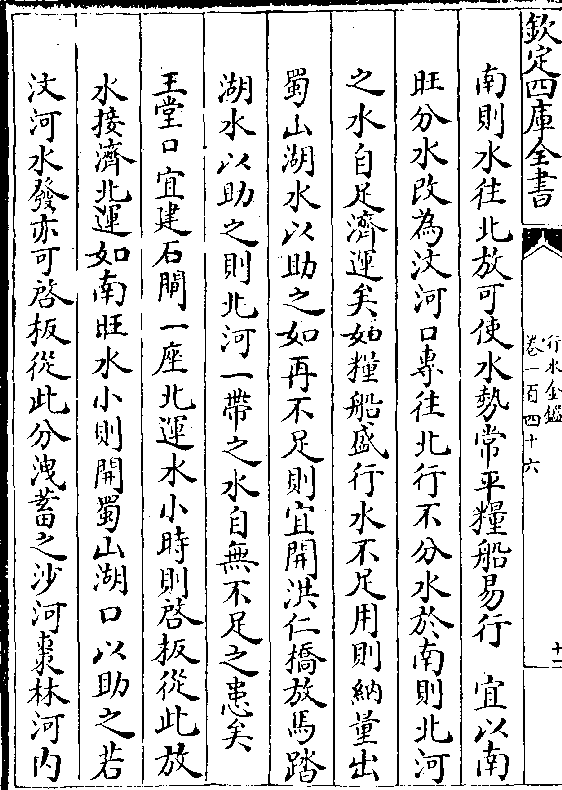 欽定四庫全書
行水金鑑
卷一百四十六
十二
南則水往北放可使水勢常平糧船易行　宜以南
旺分水改為汶河口專往北行不分水於南則北河
之水自足濟運矣如糧船盛行水不足用則納量出
蜀山湖水以助之如再不足則宜開洪仁橋放馬踏
湖水以助之則北河一帶之水自無不足之患矣
王堂口宜建石閘一座北運水小時則啓板從此放
水接濟北運如南旺水小則開蜀山湖口以助之若
汶河水發亦可啓板從此分洩蓄之沙河棗林河內